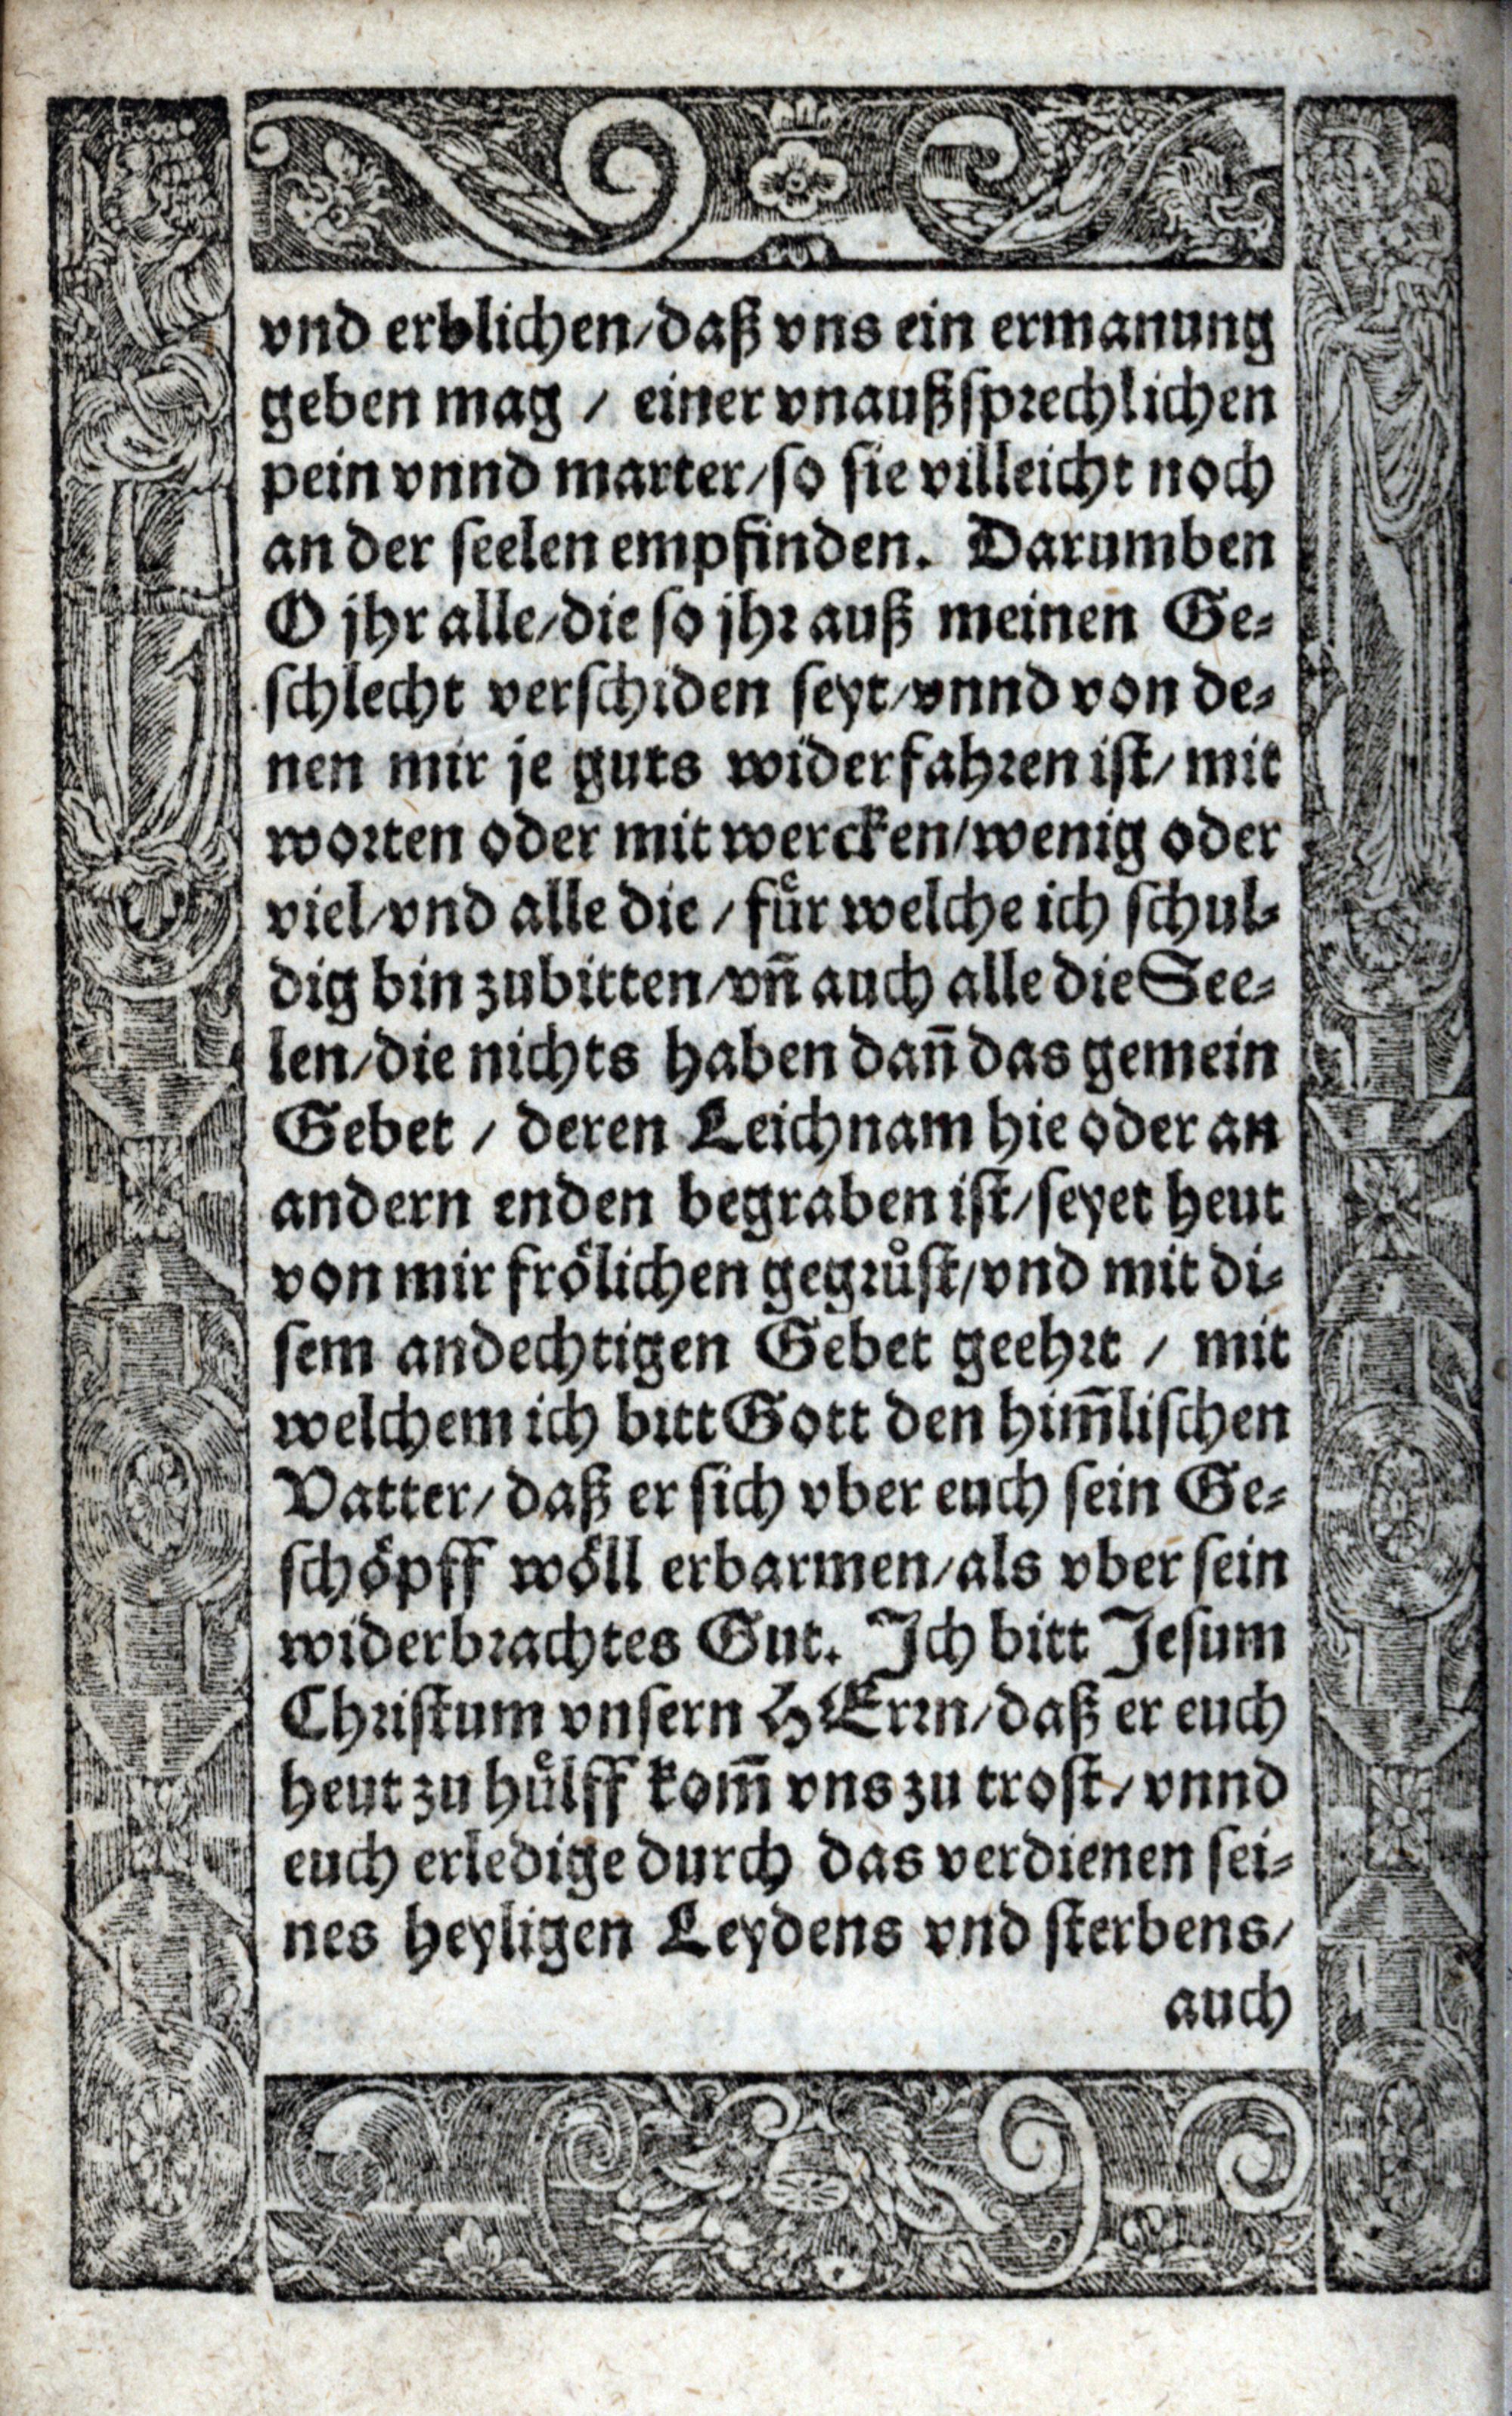 vnd erblichen/daß vns ein ermanung
geben mag / einer vnaußsprechlichen
pein vnnd marter/so sie villeicht noch
an der seelen empfinden. Darumben
O jhr alle/die so jhr auß meinen Ge-
schlecht verschiden seyt/vnnd von de-
nen mir je guts widerfahren ist/ mit
worten oder mit wercken/wenig oder
viel/vnd alle die / fuͤr welche ich schul-
dig bin zubitten/vn̄ auch alle die See-
len/die nichts haben dan̄ das gemein
Gebet / deren Leichnam hie oder an
andern enden begraben ist/seyet heut
von mir froͤlichen gegruͤst/vnd mit di-
sem andechtigen Gebet geehrt / mit
welchem ich bitt Gott den him̄lischen
Vatter/ daß er sich vber euch sein Ge-
schoͤpff woͤll erbarmen/als vber sein
widerbrachtes Gut. Ich bitt Jesum
Christum vnsern HErrn/daß er euch
heut zu huͤlff kom̄ vns zu trost/vnnd
euch erledige durch das verdienen sei-
nes heyligen Leydens vnd sterbens/
auch